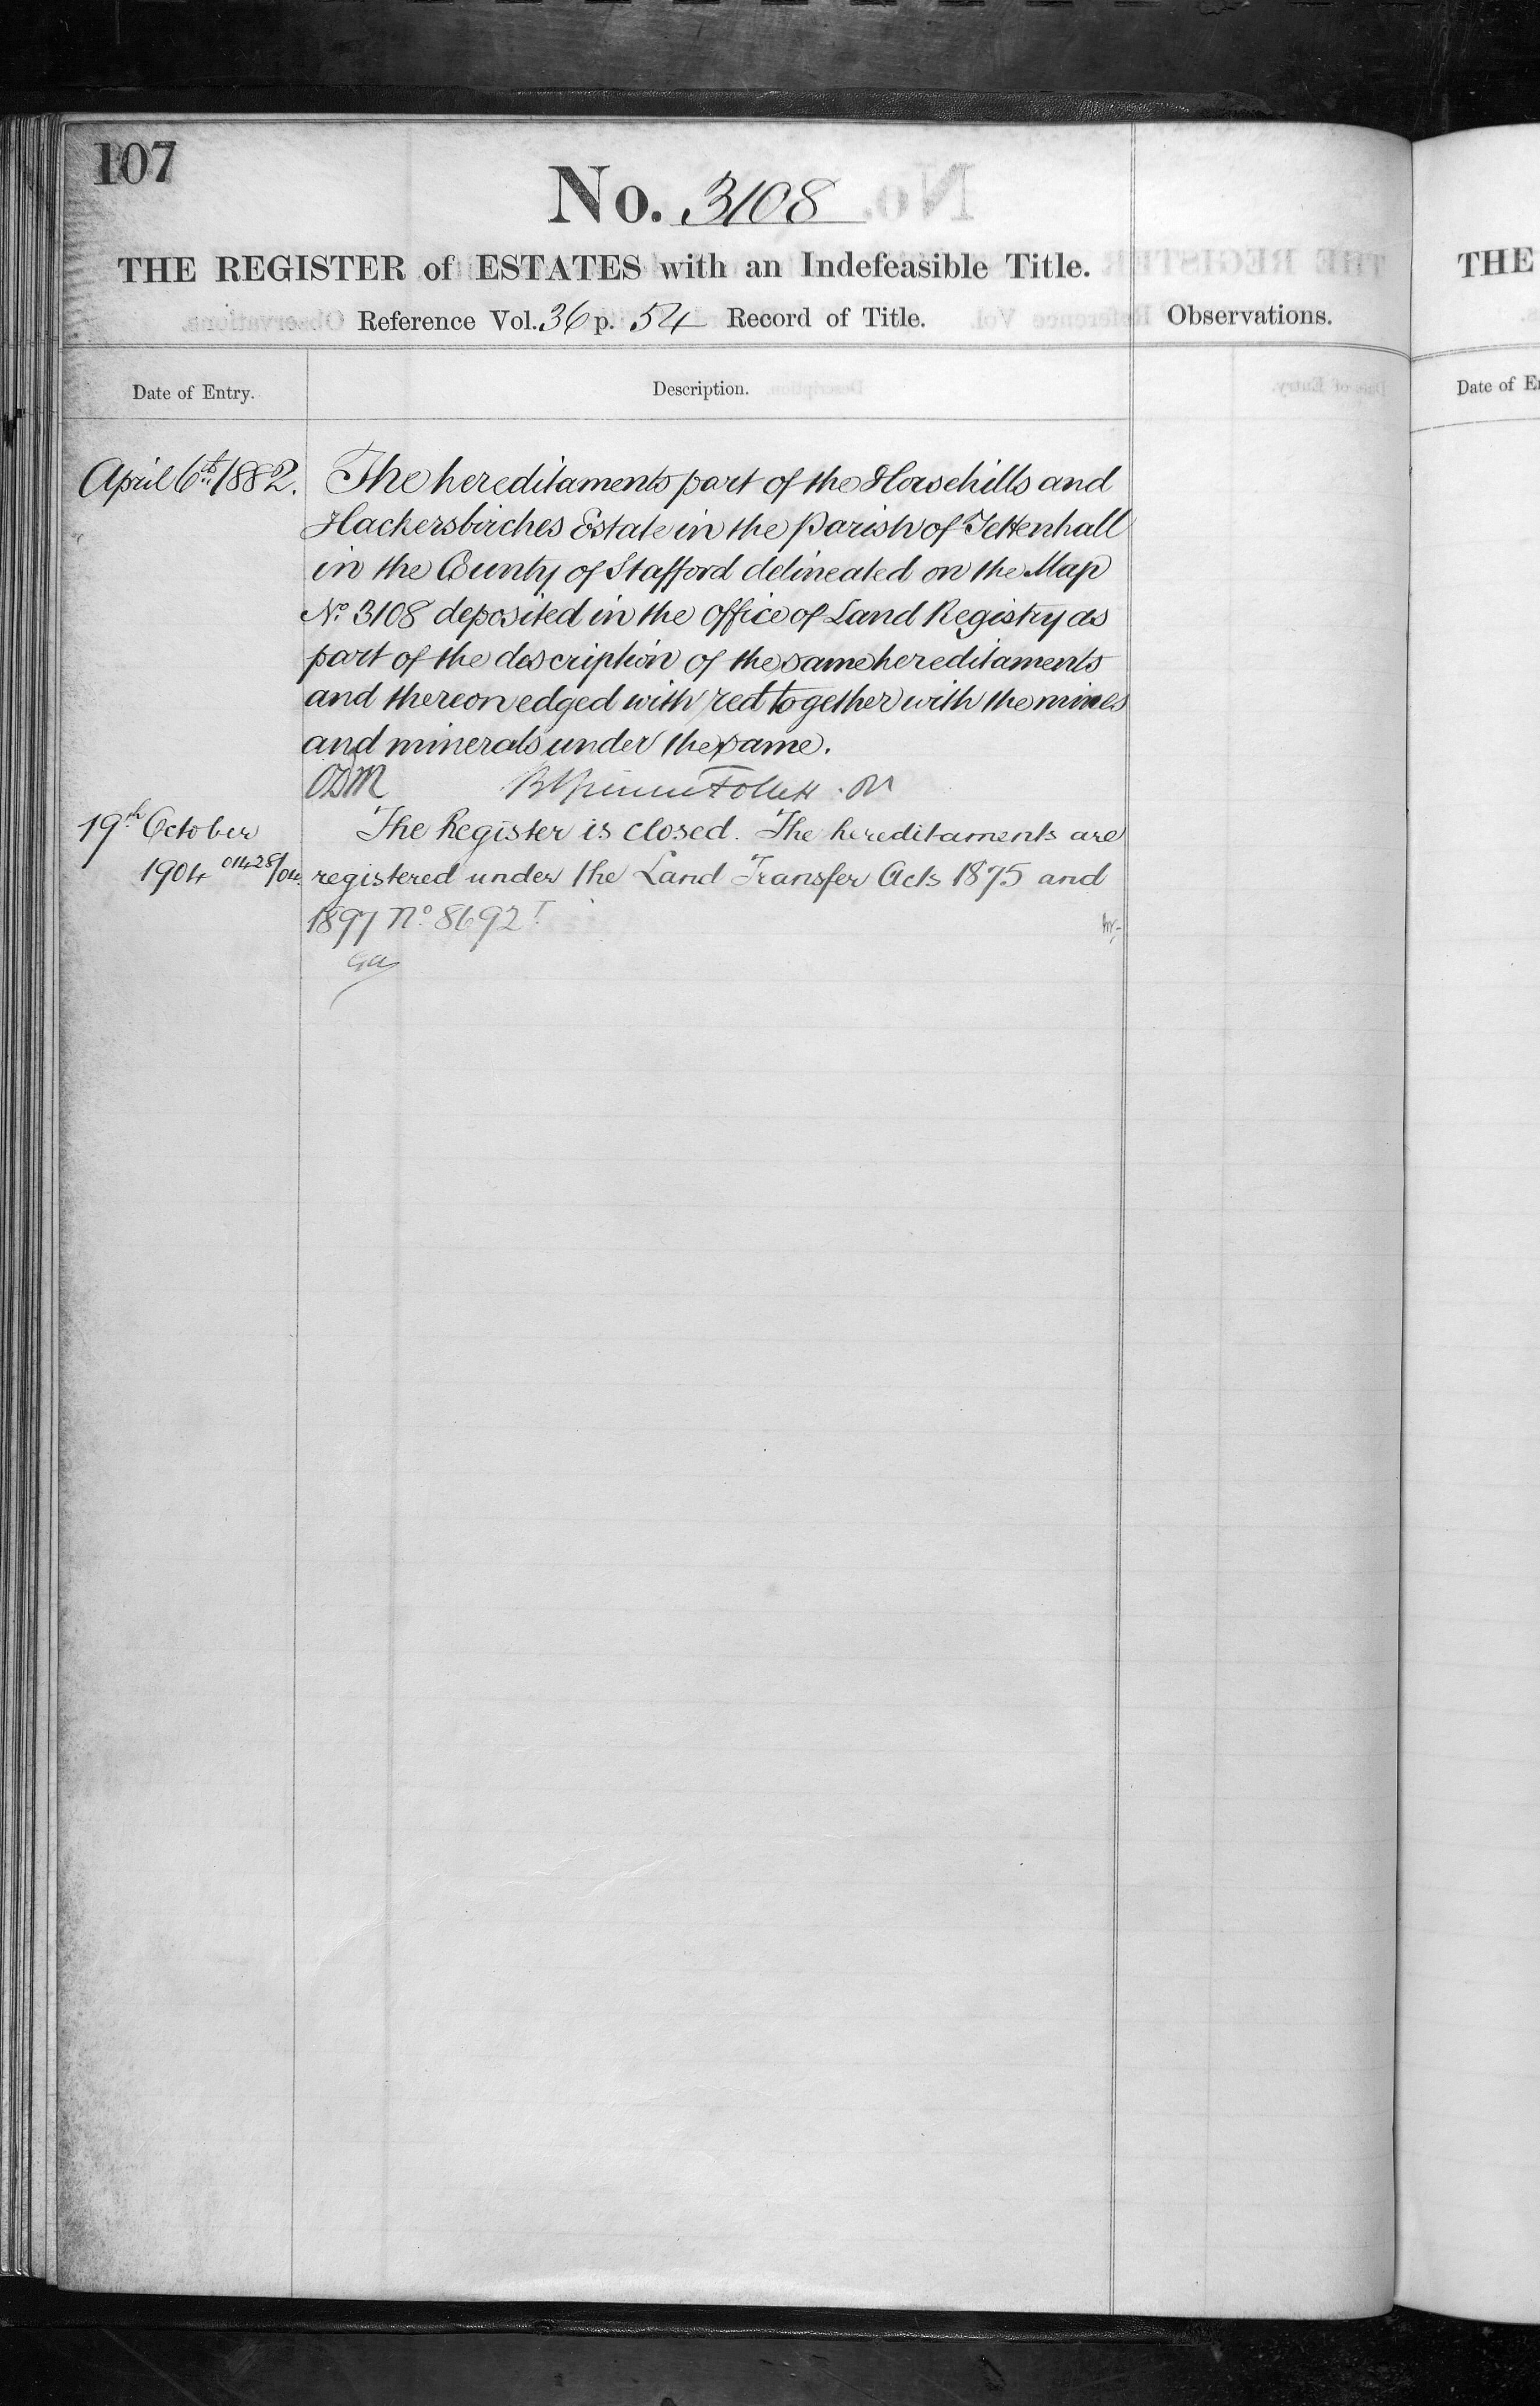 107
No. 3108
THE REGISTER of ESTATES with an Indefeasible Title.
Reference Vol. 36 p. 54 Record of Title.
Observations.
Date of Entry.
Description.
April 6th 1882.
The hereditaments part of the Horsehills and
Hackersbirches Estate in the Parish of Tettenhall
in the County of Stafford delineated on the Map
No. 3108 deposited in the Office of Land Registry as
part of the description of the same hereditaments
and thereon edged with red together with the mines
and minerals under the same.
Follett
19th October
1904
The Register is closed. The hereditaments are
registered under the Land Transfer Acts 1875 and
1897 No. 8692
THE
Date of